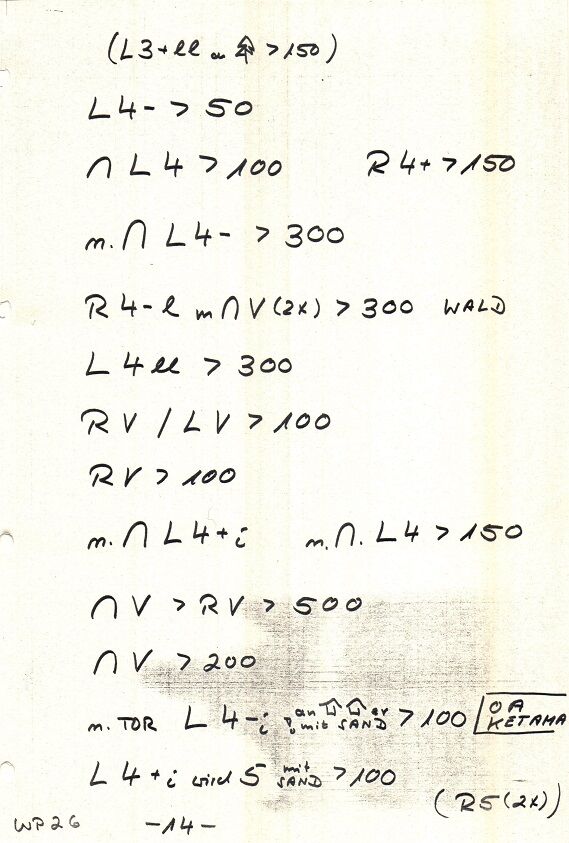 (L3+ll an > 150)
L4- > 50
∩ L4 > 100 R4+ > 150
m. ∩ L4- > 300
R4-l m ∩ V (2x) > 300 WALD
L4ll > 300
RV / LV > 100
RV > 100
m. ∩ L4+i m. ∩. L4 > 150
∩ V > RV > 500
∩ V > 200
n. TOR L4-i an mit SAND > 100 OA KETAMA
L4+i wird 5 mit SAND > 100
(R5(2x))
WP26 -14-